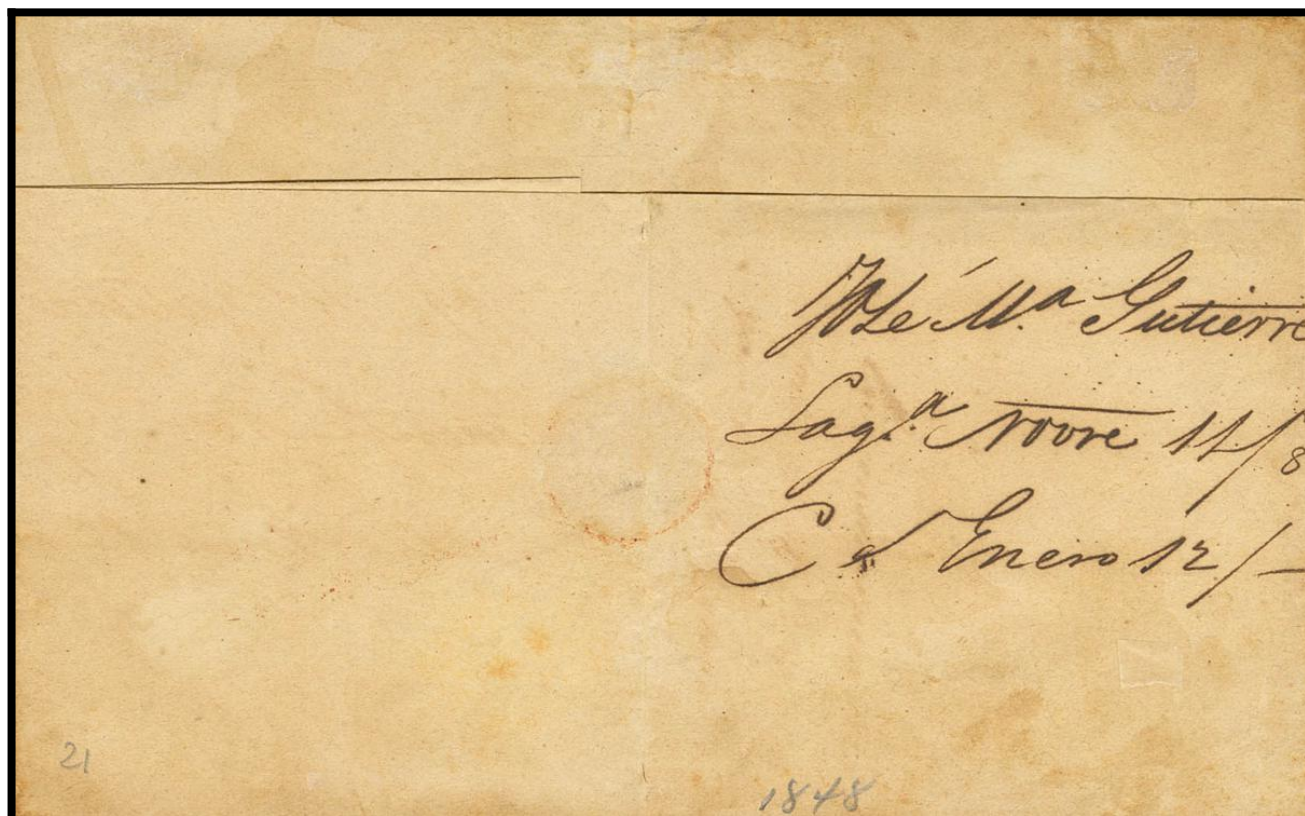 José M.a Gutierre
Lag.a Novre 11/8
C Enero 12/–
21
1848